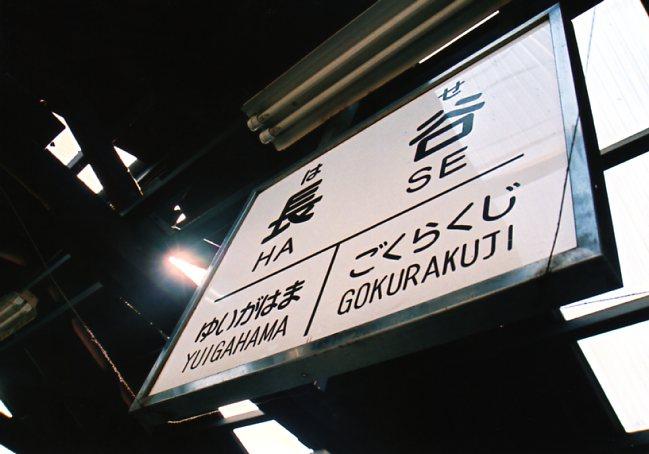 は せ
長 谷
HA SE
ゆいがはま ごくらくじ
YUIGAHAMA GOKURAKUJI